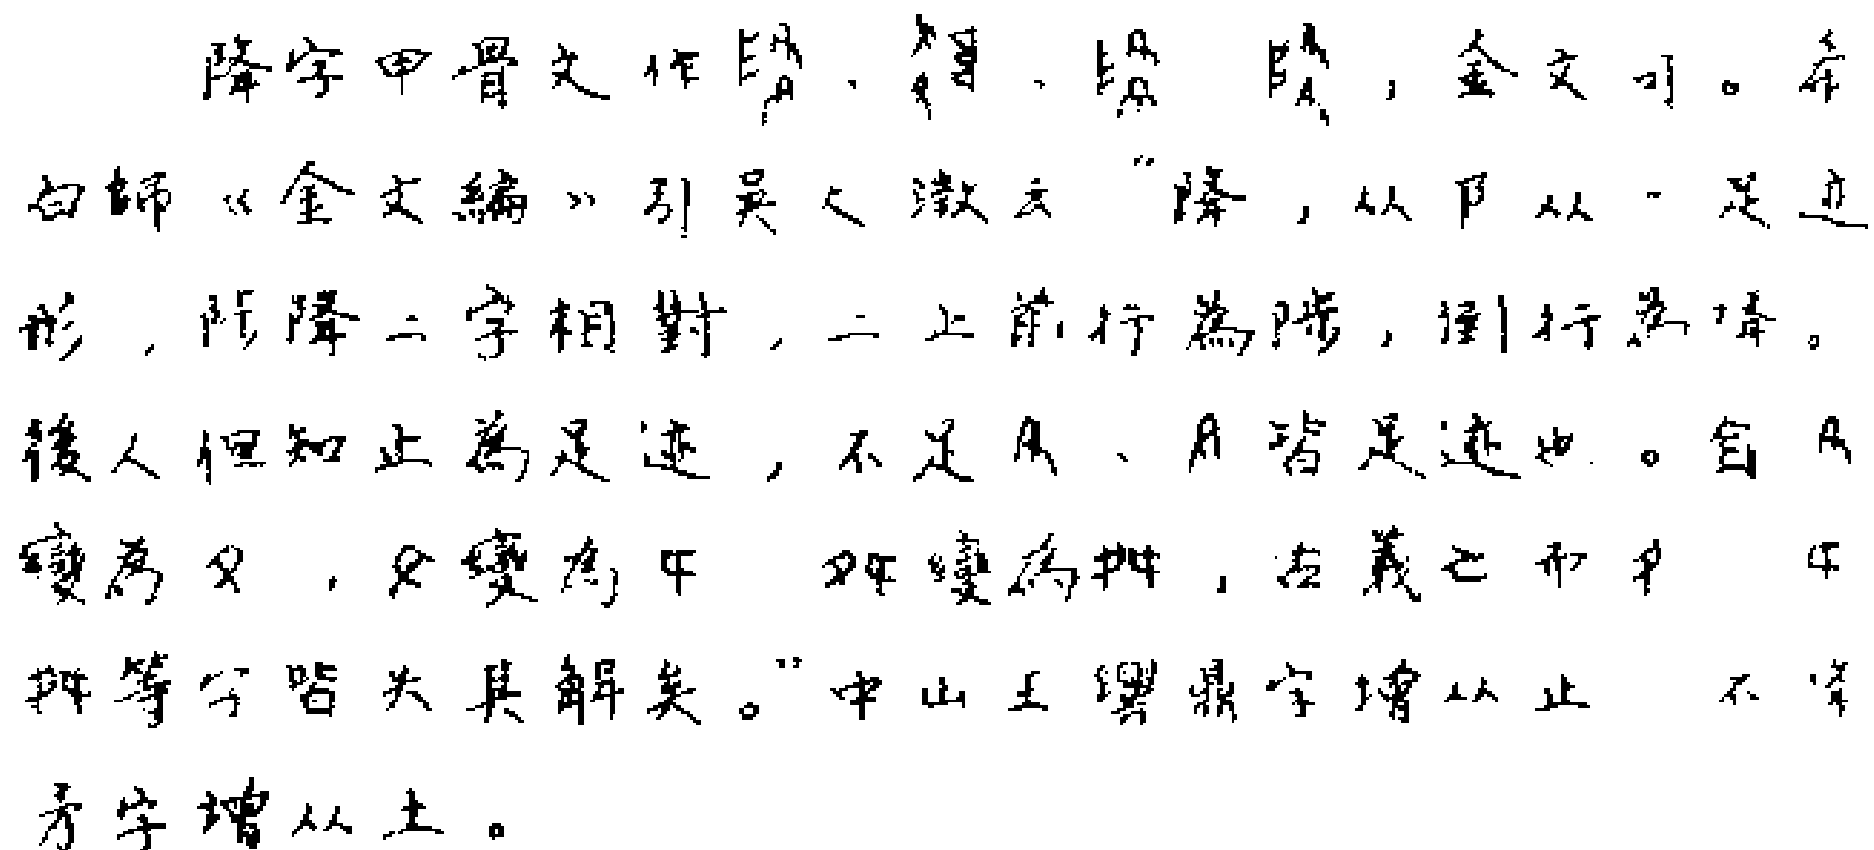 降字甲骨文作、、，金文同。希
白師《金文編》引吳大澂云“降，从阝从二足迹
形，陟降二字相對，二止前行為陟，倒行為降。
後人但知止為足迹，不足、皆足迹也。自
變為，變為㐄變為舛，古義亡而㐄
舛等字皆失其解矣。”中山王鼎字增从止不降
矛字增从土。